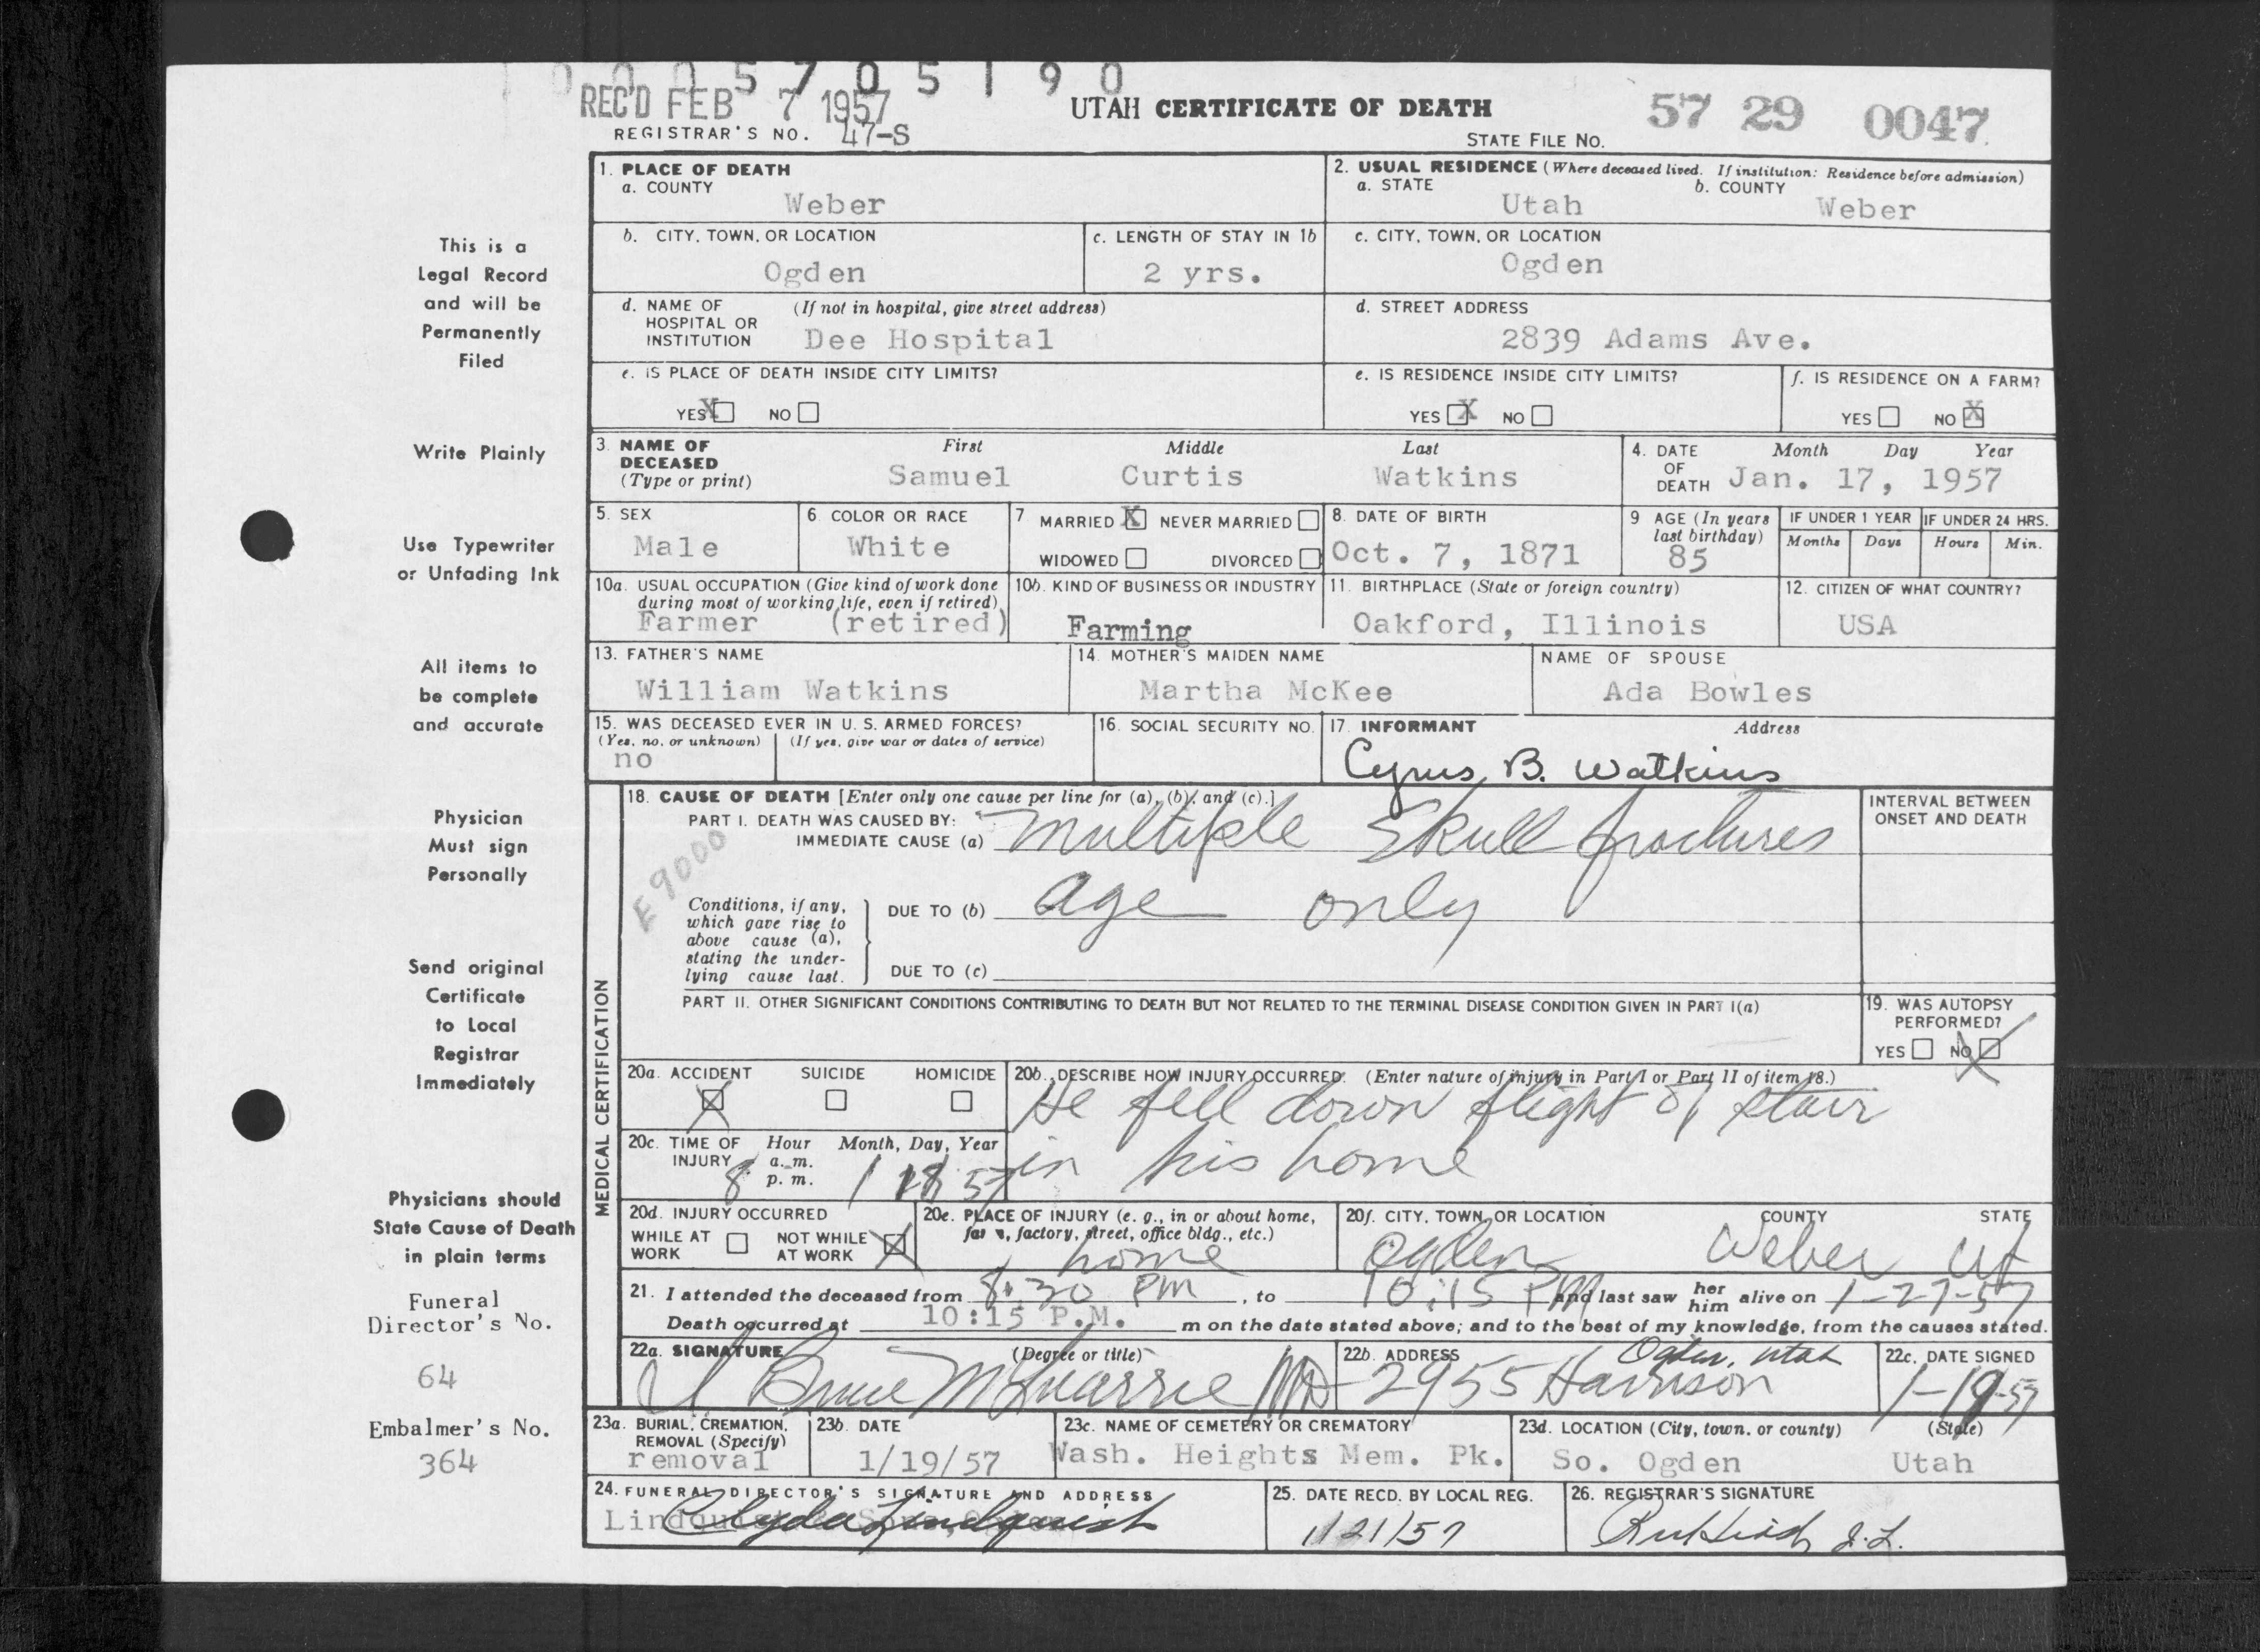 0 0 0 5 7 0 5 1 9 0
REC'D FEB 7 1957
UTAH CERTIFICATE OF DEATH
57 29 0047
REGISTRAR'S NO. 47-S
STATE FILE NO.
1. PLACE OF DEATH
a. COUNTY
Weber
2. USUAL RESIDENCE (Where deceased lived. If institution: Residence before admission)
a. STATE
Utah
b. COUNTY
Weber
b. CITY, TOWN, OR LOCATION
Ogden
c. LENGTH OF STAY IN 1b
2 yrs.
c. CITY, TOWN, OR LOCATION
Ogden
d. NAME OF HOSPITAL OR INSTITUTION
(If not in hospital, give street address)
Dee Hospital
d. STREET ADDRESS
2839 Adams Ave.
e. IS PLACE OF DEATH INSIDE CITY LIMITS?
YES X NO
e. IS RESIDENCE INSIDE CITY LIMITS?
YES X NO
f. IS RESIDENCE ON A FARM?
YES NO X
3. NAME OF DECEASED (Type or print)
First Middle Last
Samuel Curtis Watkins
4. DATE OF DEATH
Month Day Year
Jan. 17, 1957
5. SEX
Male
6. COLOR OR RACE
White
7 MARRIED X NEVER MARRIED
WIDOWED DIVORCED
8. DATE OF BIRTH
Oct. 7, 1871
9 AGE (In years last birthday)
85
IF UNDER 1 YEAR
Months Days
IF UNDER 24 HRS.
Hours Min.
10a. USUAL OCCUPATION (Give kind of work done during most of working life, even if retired)
Farmer (retired)
10b. KIND OF BUSINESS OR INDUSTRY
Farming
11. BIRTHPLACE (State or foreign country)
Oakford, Illinois
12. CITIZEN OF WHAT COUNTRY?
USA
13. FATHER'S NAME
William Watkins
14. MOTHER'S MAIDEN NAME
Martha McKee
NAME OF SPOUSE
Ada Bowles
15. WAS DECEASED EVER IN U. S. ARMED FORCES?
(Yes, no, or unknown) (If yes, give war or dates of service)
no
16. SOCIAL SECURITY NO.
17. INFORMANT Address
Cyrus B. Watkins
MEDICAL CERTIFICATION
18. CAUSE OF DEATH [Enter only one cause per line for (a), (b), and (c).]
PART I. DEATH WAS CAUSED BY:
IMMEDIATE CAUSE (a) Multiple Skull fractures
E9000
Conditions, if any, which gave rise to above cause (a), stating the underlying cause last.
DUE TO (b) age only
DUE TO (c)
INTERVAL BETWEEN ONSET AND DEATH
PART II. OTHER SIGNIFICANT CONDITIONS CONTRIBUTING TO DEATH BUT NOT RELATED TO THE TERMINAL DISEASE CONDITION GIVEN IN PART I(a)
19. WAS AUTOPSY PERFORMED?
YES NO X
20a. ACCIDENT SUICIDE HOMICIDE
X
20b. DESCRIBE HOW INJURY OCCURRED. (Enter nature of injury in Part I or Part II of item 18.)
He fell down flight of stair
in his home
20c. TIME OF INJURY
Hour Month, Day, Year
a. m.
p. m.
8
20d. INJURY OCCURRED
WHILE AT WORK NOT WHILE AT WORK X
20e. PLACE OF INJURY (e. g., in or about home, farm, factory, street, office bldg., etc.)
home
20f. CITY, TOWN, OR LOCATION COUNTY STATE
Ogden Weber Ut
21. I attended the deceased from 8:30 PM, to 10:15 PM and last saw her him alive on
Death occurred at 10:15 P.M. m on the date stated above; and to the best of my knowledge, from the causes stated.
22a. SIGNATURE (Degree or title)
Bruce McQuarrie MD
22b. ADDRESS
2955 Harrison Ogden, Utah
22c. DATE SIGNED
1-19-57
23a. BURIAL, CREMATION, REMOVAL (Specify)
removal
23b. DATE
1/19/57
23c. NAME OF CEMETERY OR CREMATORY
Wash. Heights Mem. Pk.
23d. LOCATION (City, town, or county) (State)
So. Ogden Utah
24. FUNERAL DIRECTOR'S SIGNATURE AND ADDRESS
Lindquist & Sons, Ogden
Clyde Lindquist
25. DATE RECD. BY LOCAL REG.
1/21/57
26. REGISTRAR'S SIGNATURE
This is a
Legal Record
and will be
Permanently
Filed
Write Plainly
Use Typewriter
or Unfading Ink
All items to
be complete
and accurate
Physician
Must sign
Personally
Send original
Certificate
to Local
Registrar
Immediately
Physicians should
State Cause of Death
in plain terms
Funeral
Director's No.
64
Embalmer's No.
364